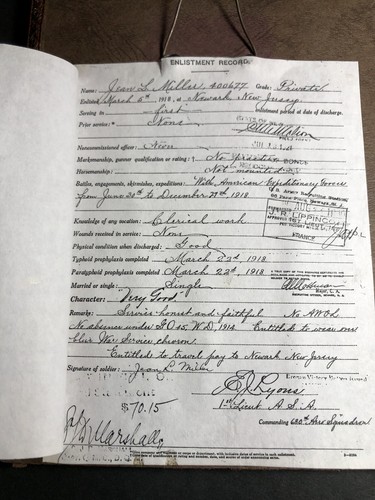 ENLISTMENT RECORD.
Name: Jean L. Miller, 400677 Grade: Private
Enlisted March 5th, 1918, at Newark New Jersey
Serving in first enlistment period at date of discharge.
Prior service:* None
Noncommissioned officer: Non
Marksmanship, gunner qualification or rating:† No practice
Horsemanship: Not mounted
Battles, engagements, skirmishes, expeditions: With American Expeditionary Forces
from June 30th to December 27th 1918
Knowledge of any vocation: Clerical work
J. R. LIPPINCOTT
FRANCE
Wounds received in service: None
Physical condition when discharged: Good
Typhoid prophylaxis completed March 22d, 1918
Paratyphoid prophylaxis completed March 22d, 1918
Married or single: Single
Character: Very Good
Remarks: Service honest and faithful No AWOL
No absence under G.O. 45, W.D. 1914. Entitled to wear one
blue War Service chevron
Entitled to travel pay to Newark New Jersey
Signature of soldier: Jean L. Miller
$70.15
E J Lyons
1st Lieut A. S. A.
Commanding 680th Aero Squadron
Marshall